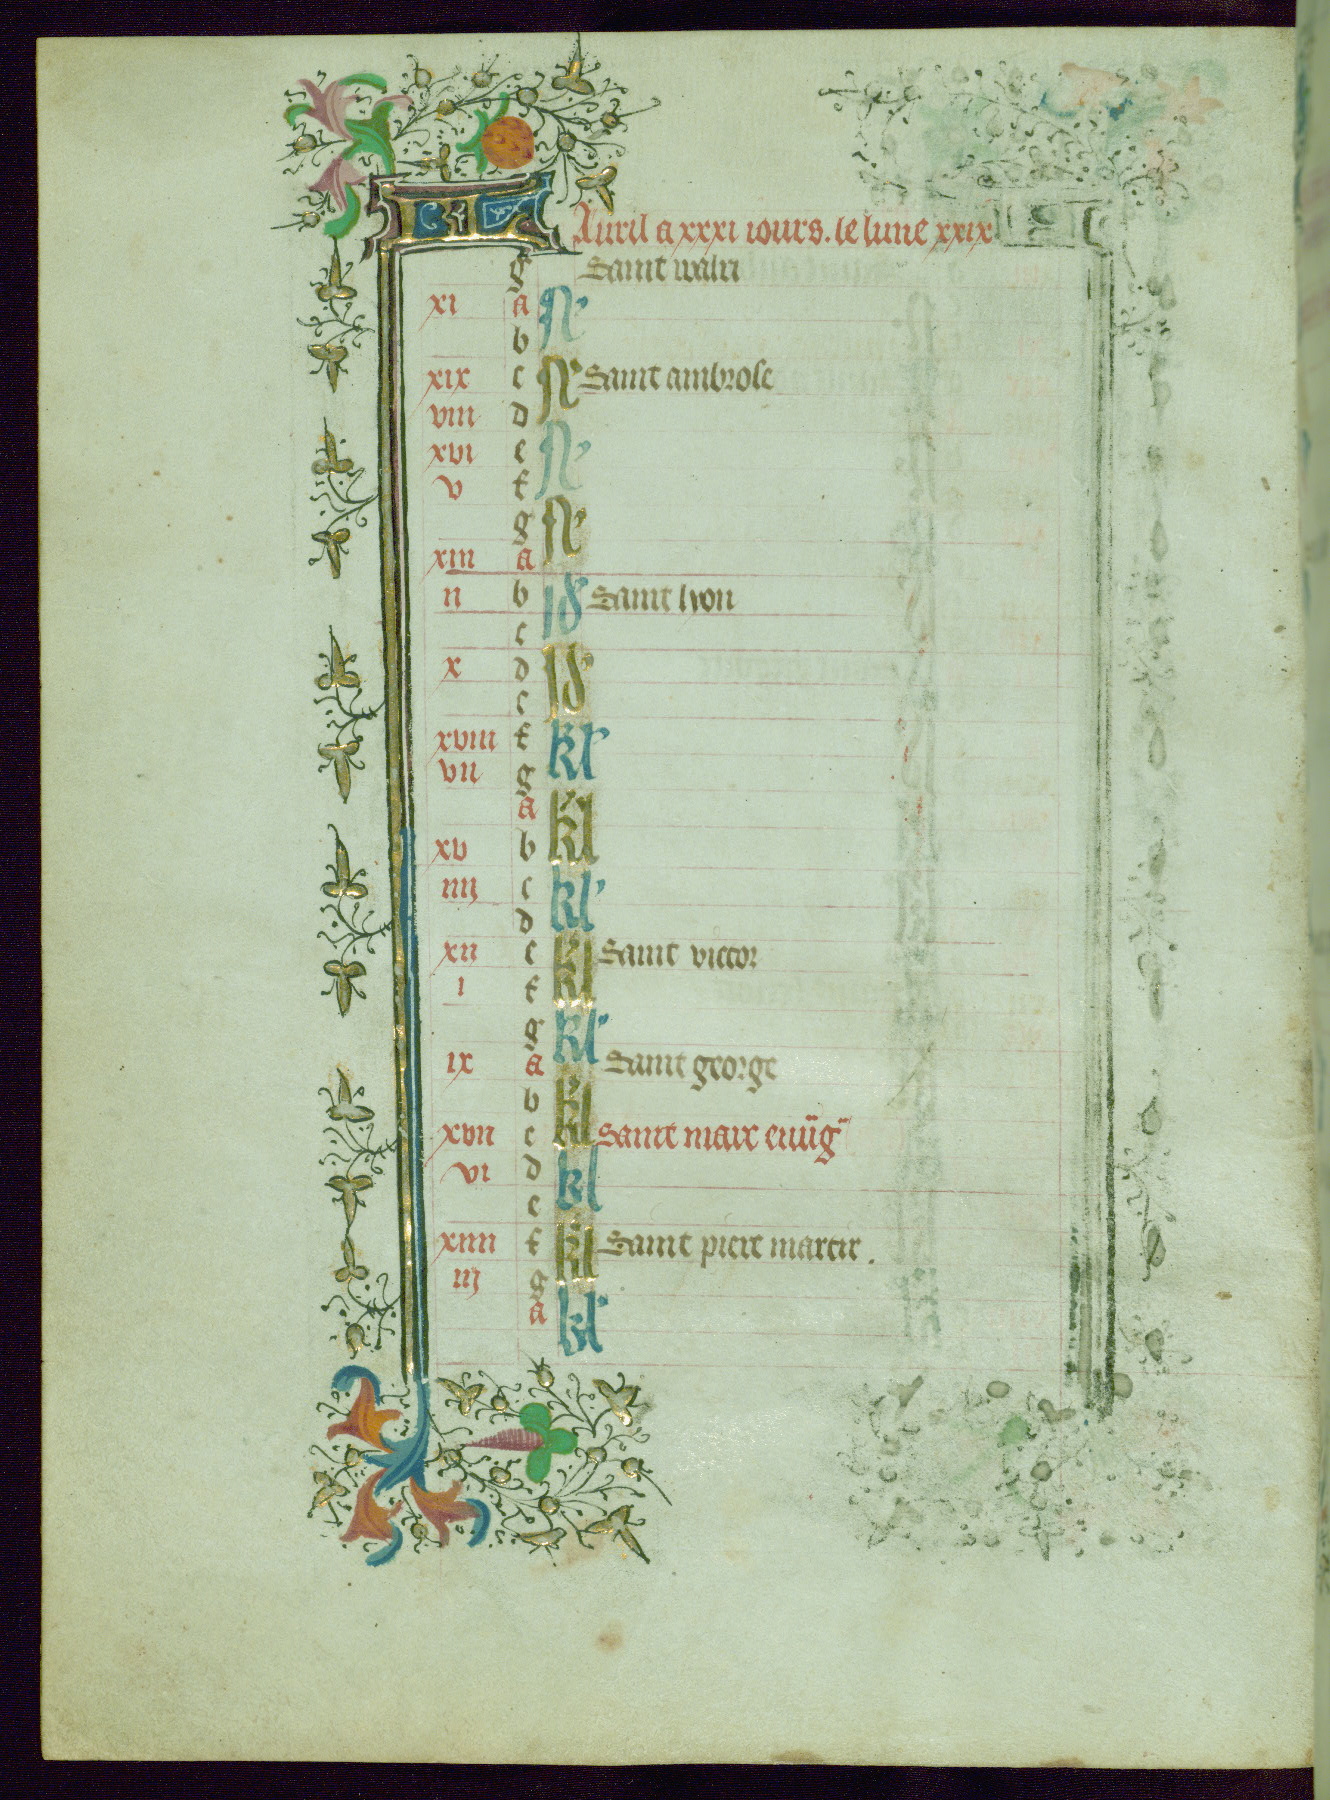 Auril a xxxi iours. le lune xxix
g Saint walri
xi a N
b
xix c N Saint ambrose
viii d
xvi e N
v f
g N
xiii a
ii b id Saint lyon
c
x d id
e
xviii f kl
vii g
a kl
xv b
iiij c kl
d
xii e kl Saint victor
i f
g kl
ix a Saint george
b kl
xvii c Saint marc euu̅g
vi d kl
e
xiiii f kl Saint piere martir.
iij g
a kl